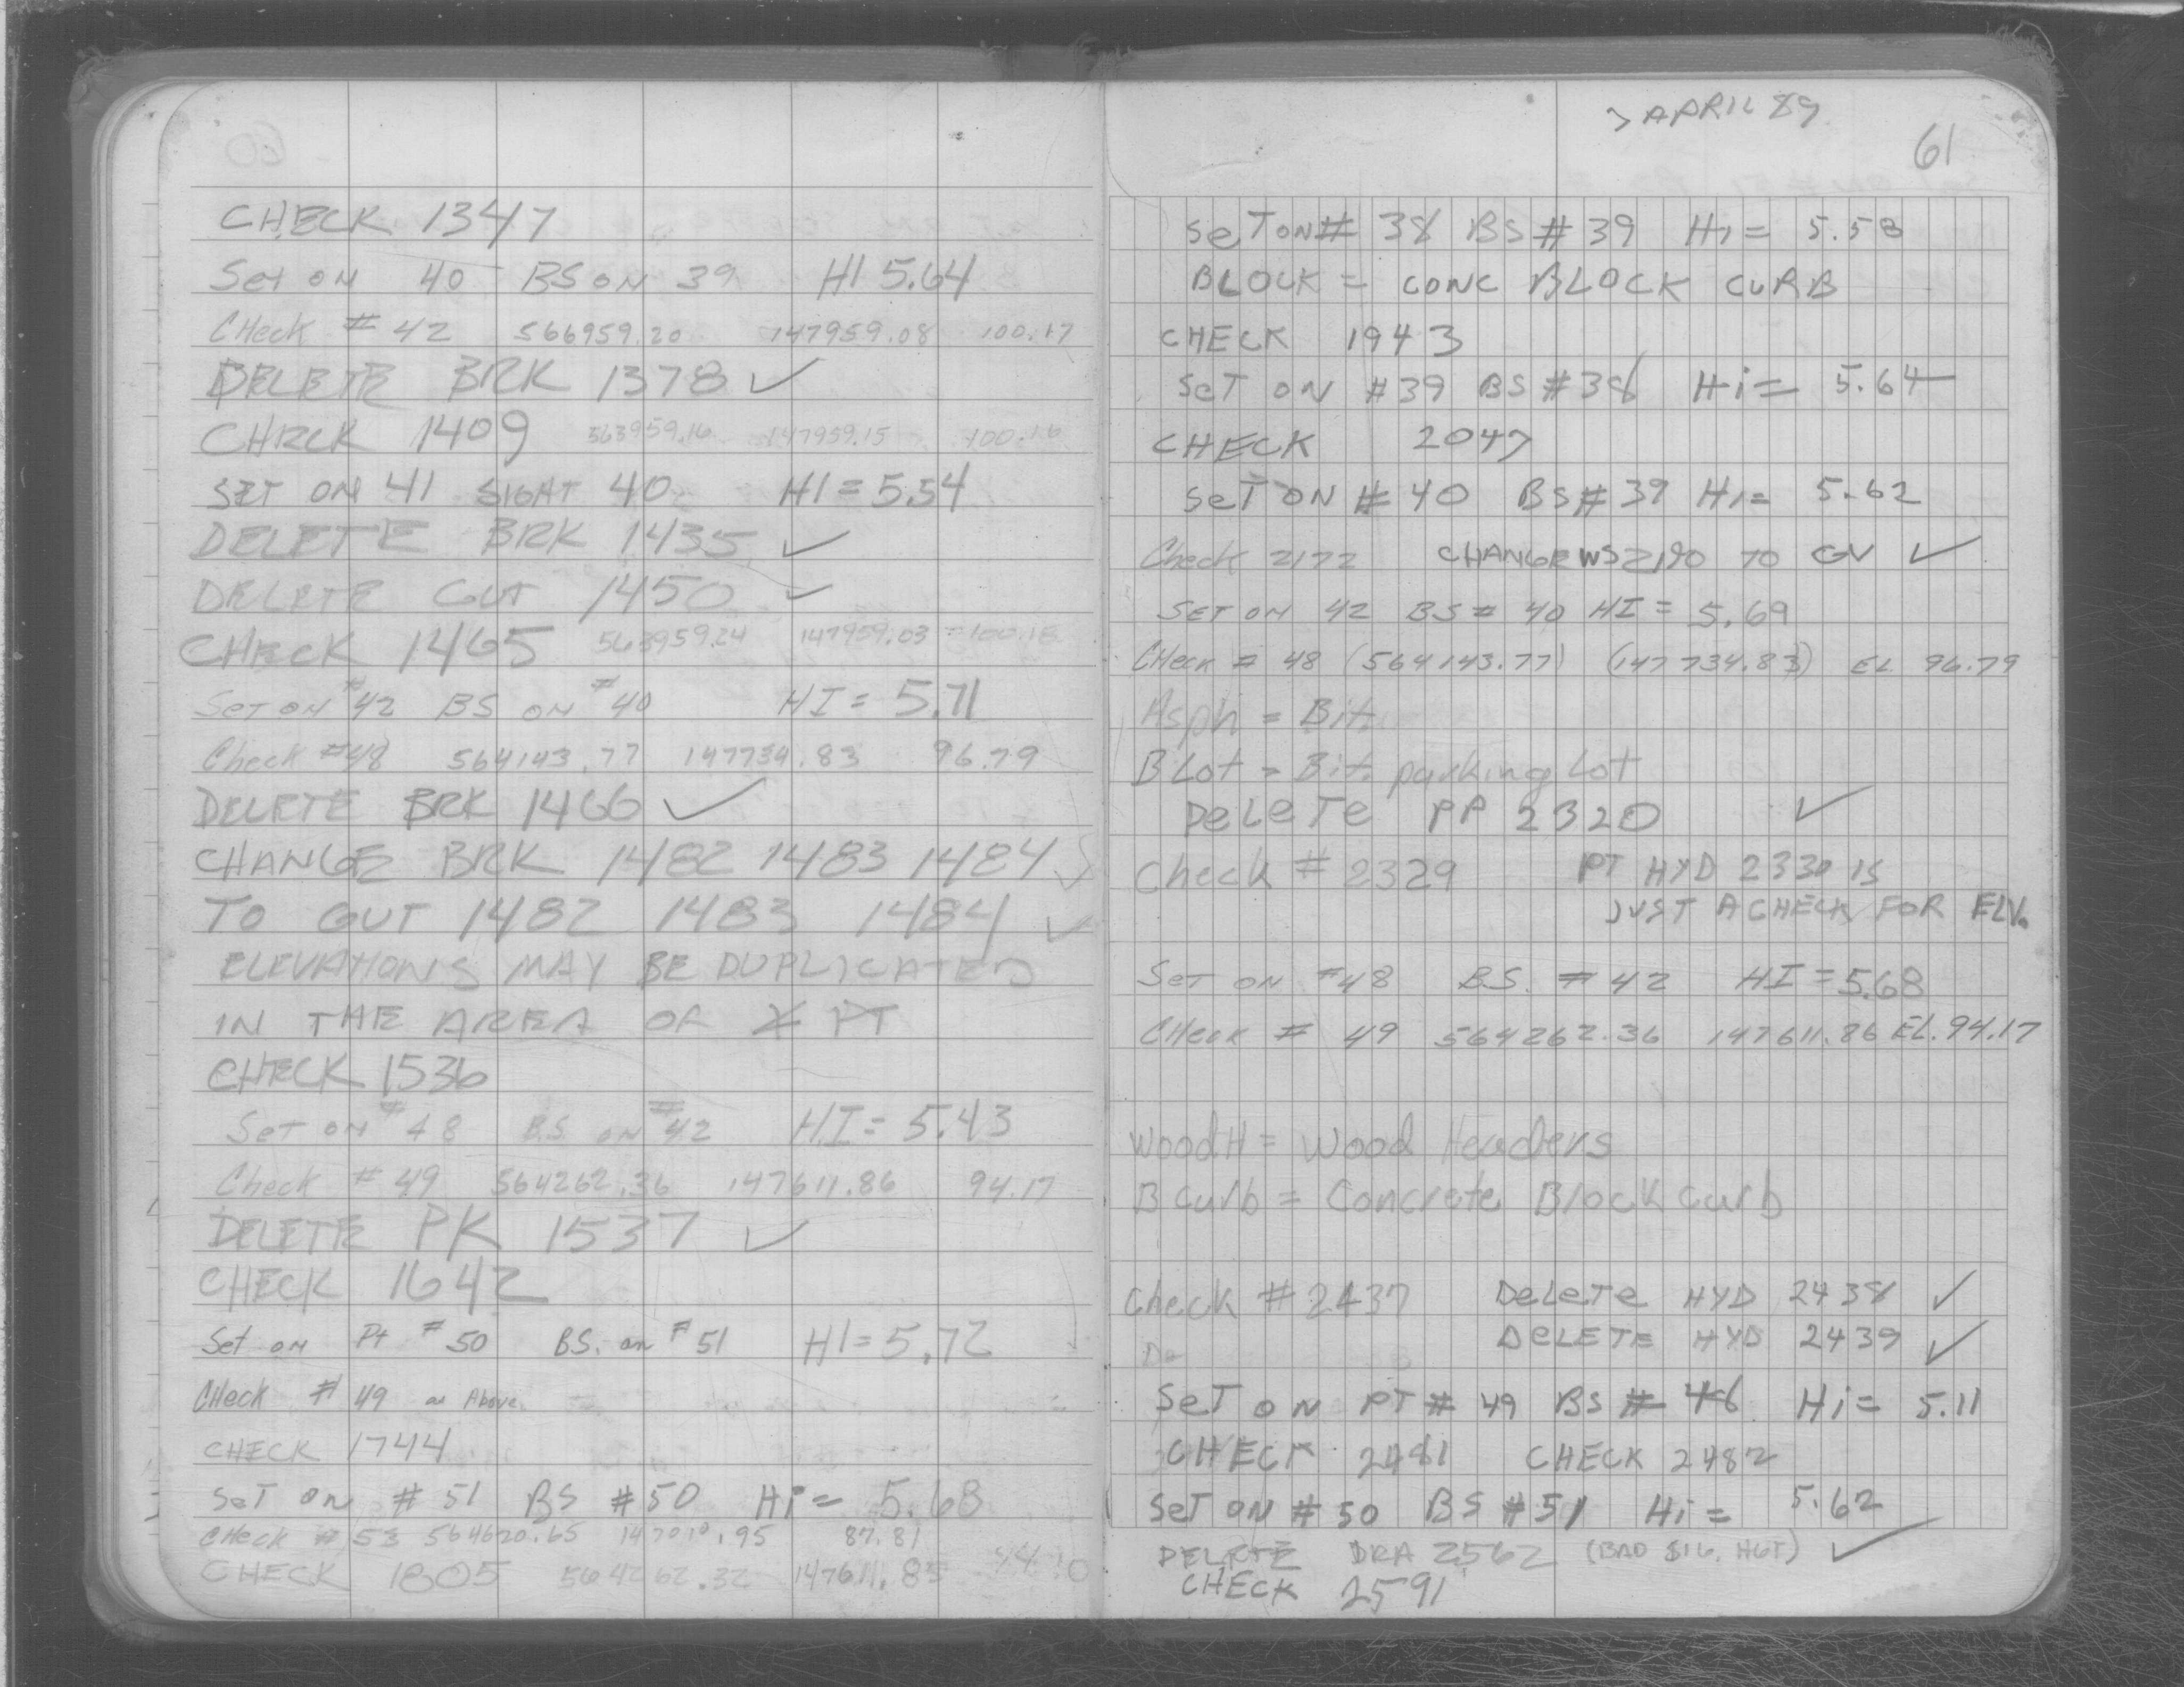 CHECK 1347
Set on 40 BS on 39 HI 5.64
Check # 42 566959.20 147959.08 100.17
DELETE BRK 1378 ✓
CHECK 1409 563959.16 147959.15 100.16
SET ON 41 SIGHT 40 HI = 5.54
DELETE BRK 1435 ✓
DELETE GUT 1450 ✓
CHECK 1465 563959.24 147959.03 100.18
Set on #42 BS on #40 HI = 5.71
Check #48 564143.77 147734.83 96.79
DELETE BRK 1466 ✓
CHANGE BRK 1482 1483 1484
TO GUT 1482 1483 1484 ✓
ELEVATIONS MAY BE DUPLICATED
IN THE AREA OF X PT
CHECK 1536
Set on #48 B.S. on #42 HI = 5.43
Check # 49 564262.36 147611.86 94.17
DELETE PK 1537 ✓
CHECK 1642
Set on Pt # 50 BS. on # 51 HI = 5.72
Check # 49 as Above
CHECK 1744
SeT on # 51 BS # 50 Hi = 5.68
Check # 53 564620.65 147010.95 87.81
CHECK 1805 564262.32 147611.85
APRIL 89
61
SeT on # 38 BS # 39 Hi = 5.58
BLOCK = CONC BLOCK CURB
CHECK 1943
SeT ON #39 BS #38 Hi = 5.64
CHECK 2047
SeT ON # 40 BS # 39 Hi = 5.62
Check 2172 CHANGE WS 2190 TO GV ✓
SET ON 42 BS # 40 HI = 5.69
Check # 48 (564143.77) (147734.83) EL 96.79
Asph = Bit.
B Lot = Bit. parking Lot
DeLeTe PP 2320 ✓
Check # 2329 PT HYD 2330 IS
JUST A CHECK FOR ELV.
Set on #48 B.S. # 42 HI = 5.68
Check # 49 564262.36 147611.86 EL. 94.17
WoodH = Wood Headers
B Curb = Concrete Block Curb
Check # 2437 DeLeTe HYD 2438 ✓
DELETE HYD 2439 ✓
SeT ON PT # 49 BS # 48 Hi = 5.11
CHECK 2481 CHECK 2482
SeT ON # 50 BS # 51 Hi = 5.62
DELETE DRA 2562 (BAD SIG. HGT) ✓
CHECK 2591